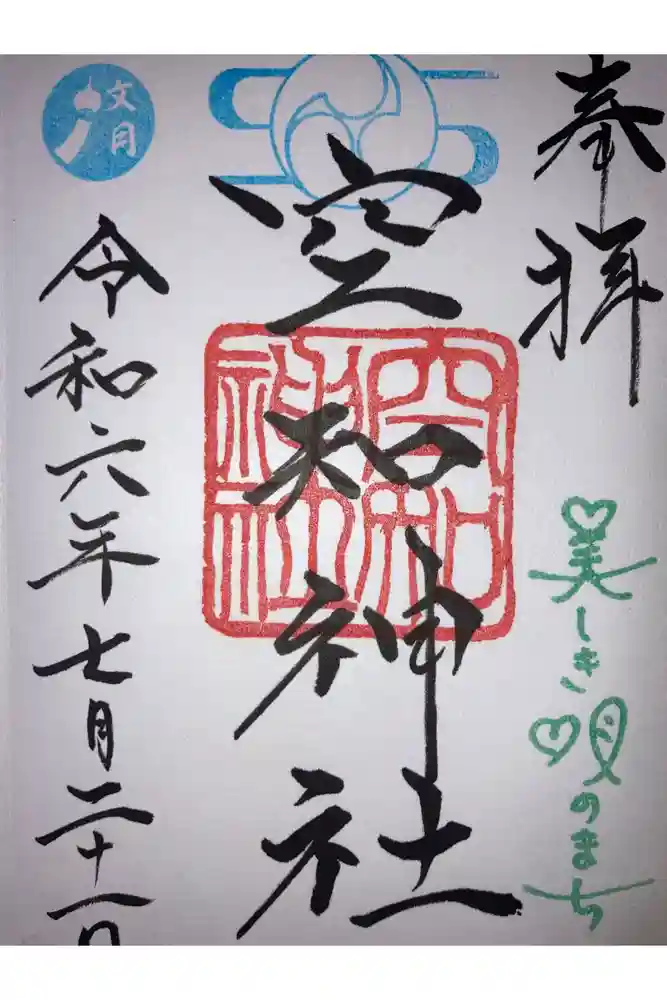 奉拝
美しき唄のまち
空知神社
空知神社
令和六年七月二十一日
文月